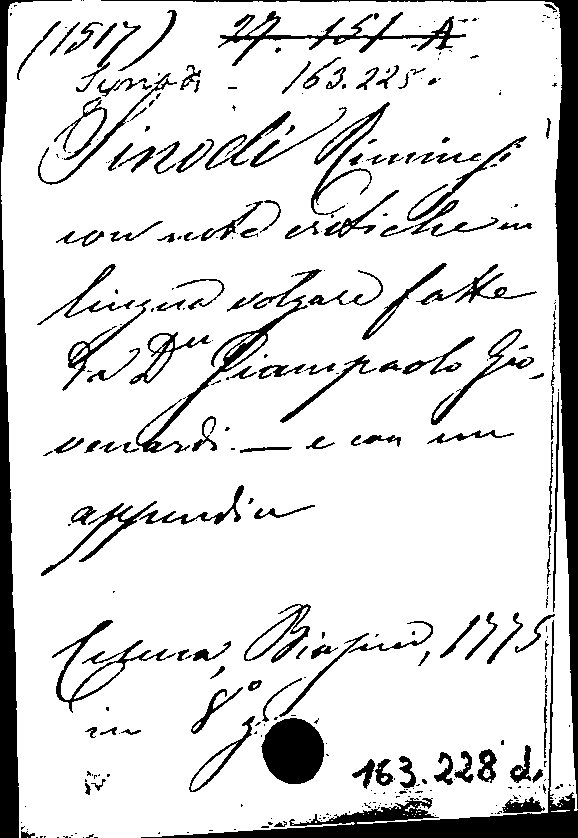 (1517) 27. 151. A
Sinodi - 163.225.
Sinodi Riminesi
con note critiche in
lingua volgare fatte
da Dn Giampaolo Gio-
venardi — e con un
appendice
Cesena, Biasini, 1775
in 8° g
163.228 d.